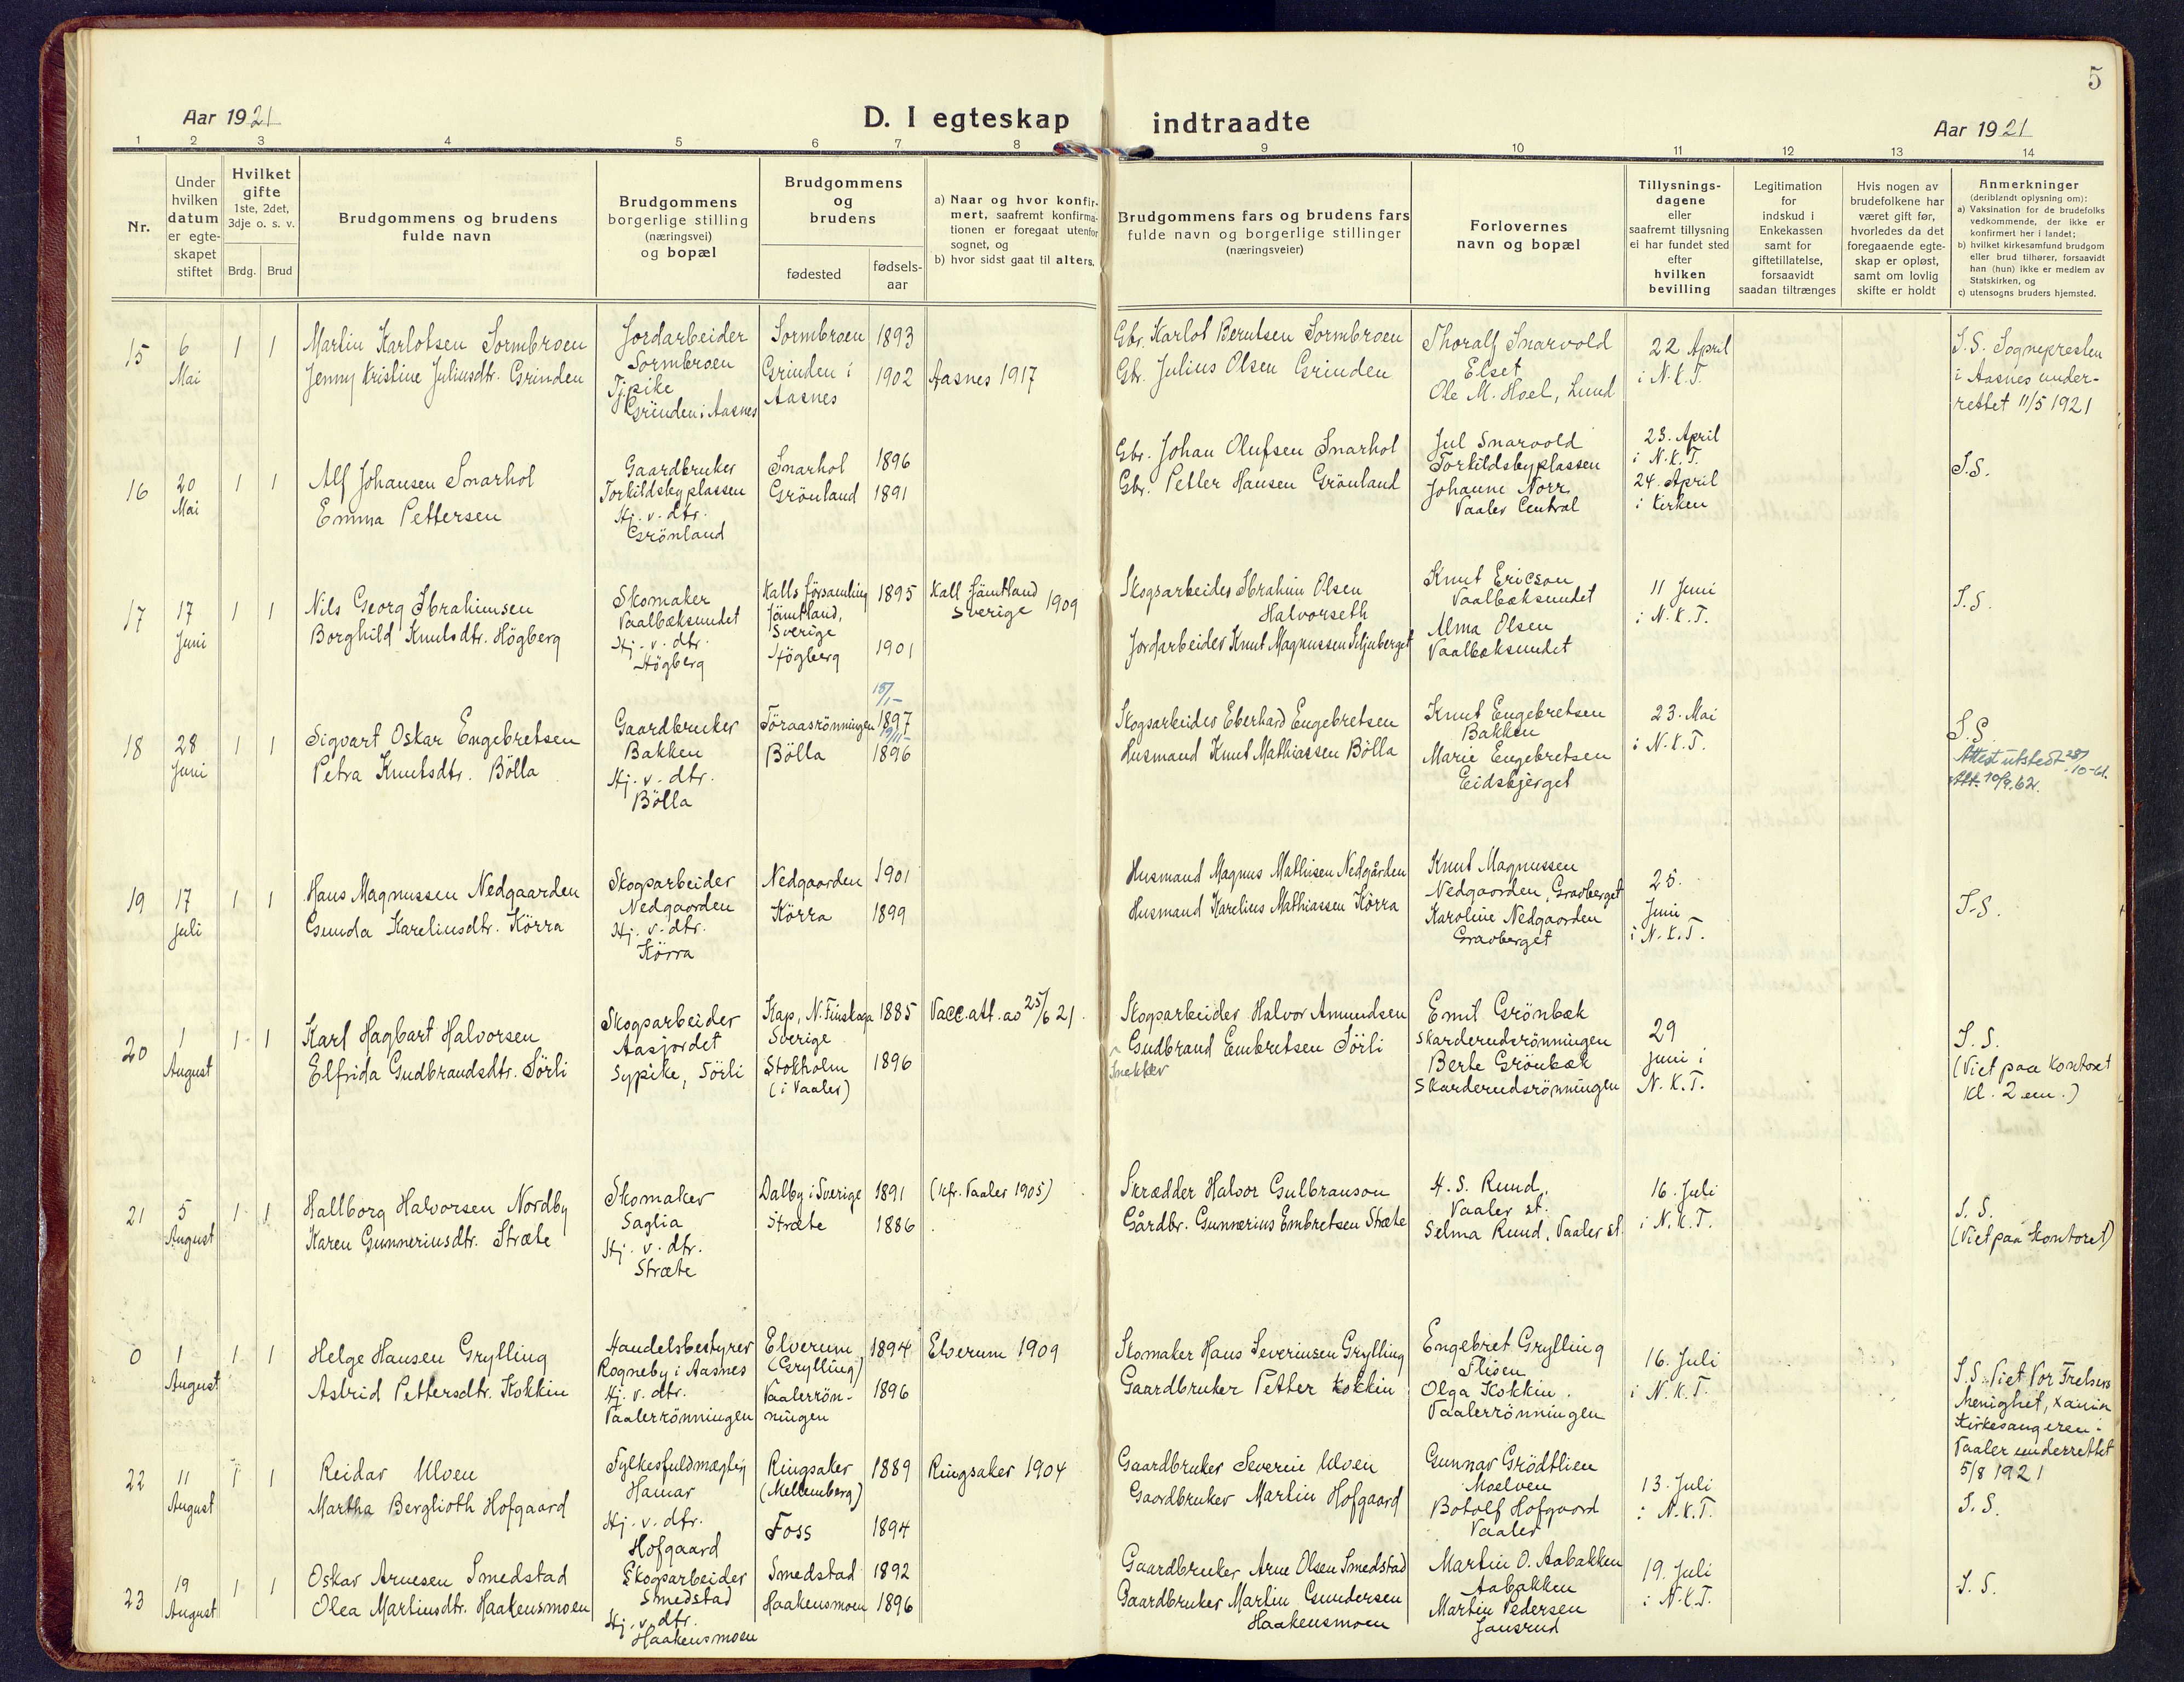 5
Aar 1921
D. I egteskap indtraadte
Aar 1921
1 2 3 4 5 6 7 8 9 10 11 12 13 14
Nr.
Under
hvilken
datum
er egte-
skapet
stiftet
Hvilket
gifte
1ste, 2det,
3dje o. s. v.
Brdg. Brud
Brudgommens og brudens
fulde navn
Brudgommens
borgerlige stilling
(næringsvei)
og bopæl
Brudgommens
og
brudens
fødested
fødsels-
aar
a) Naar og hvor konfir-
mert, saafremt konfirma-
tionen er foregaat utenfor
sognet, og
b) hvor sidst gaat til alters.
Brudgommens fars og brudens fars
fulde navn og borgerlige stillinger
(næringsveier)
Forlovernes
navn og bopæl
Tillysnings-
dagene
eller
saafremt tillysning
ei har fundet sted
efter
hvilken
bevilling
Legitimation
for
indskud i
Enkekassen
samt for
giftetillatelse,
forsaavidt
saadan tiltrænges
Hvis nogen av
brudefolkene har
været gift før,
hvorledes da det
foregaaende egte-
skap er opløst,
samt om lovlig
skifte er holdt
Anmerkninger
(deriblandt oplysning om):
a) Vaksination for de brudefolks
vedkommende, der ikke er
konfirmert her i landet;
b) hvilket kirkesamfund brudgom
eller brud tilhører, forsaavidt
han (hun) ikke er medlem av
Statskirken, og
c) utensogns bruders hjemsted.
15
6
Mai
1 1
Martin Karlotsen Sormbroen
Jenny Kristine Juliusdtr. Grinden
Jordarbeider
Sormbroen
Tjpike
Grinden i Aasnes
Sormbroen
Grinden i
Aasnes
1893
1902
Aasnes 1917
Gbr. Karlot Berntsen Sormbroen
Gbr. Julius Olsen Grinden
Thoralf Snarvold
Elset
Ole M. Hoel, Lund
22. April
i N.K.T.
S.S. Sognepresten
i Aasnes under-
rettet 11/5 1921
16
20
Mai
1 1
Alf Johansen Snarhol
Emma Pettersen
Gaardbruker
Torkildsbyplassen
Hj. v. dtr.
Grönland
Snarhol
Grönland
1896
1891
Gbr. Johan Olufsen Snarhol
Gbr. Petter Hansen Grönland
Jul Snarvold
Torkildsbyplassen
Johanne Norr
Vaaler Central
23. April
i N.K.T.
24. April
i Kirken
S.S.
17
17
Juni
1 1
Nils Georg Ibrahimsen
Borghild Knutsdtr. Högberg
Skomaker
Vaalbæksundet
Hj. v. dtr.
Högberg
Kalls församling
Jämtland,
Sverige
Högberg
1895
1901
Kall Jämtland
Sverige 1909
Skogsarbeider Ibrahim Olsen
Halvorseth
Jordarbeider Knut Magnussen Siljuberget
Knut Ericson
Vaalbæksundet
Alma Olsen
Vaalbæksundet
11 Juni
i N.K.T.
S.S.
18
28
Juni
1 1
Sigvart Oskar Engebretsen
Petra Knutsdtr. Bölla
Gaardbruker
Bakken
Hj. v. dtr.
Bölla
Föraasrönningen
Bölla
1897
1896
Skogsarbeider Eberhard Engebretsen
Husmand Knut Mathiassen Bölla
Knut Engebretsen
Bakken
Marie Engebretsen
Eidsbjerget
23. Mai
i N.K.T.
S.S.
Attest utstedt 28/10-61.
Att. 10/9.62.
19
17
Juli
1 1
Hans Magnussen Nedgaarden
Gunda Kareliusdtr. Körra
Skogsarbeider
Nedgaarden
Hj. v. dtr.
Körra
Nedgaarden
Körra
1901
1899
Husmand Magnus Mathisen Nedgården
Husmand Karelius Mathiassen Körra
Knut Magnussen
Nedgaarden, Gravberget
Karoline Nedgaarden
Gravberget
25.
Juni
i N.K.T.
S.S.
20
1
August
1 1
Karl Hagbart Halvorsen
Elfrida Gudbrandsdtr. Sörli
Skogsarbeider
Aasjordet
Sypike, Sörli
Kap, N. Finskoga
Sverige
Stokholm
(i Vaaler)
1885
1896
Vacc. att. av 25/6 21.
Skogsarbeider Halvor Amundsen
Gudbrand Embretsen Sörli
Snekker
Emil Grönbæk
Skarderudsrönningen
Berte Grönbæk
Skarderudsrönningen
29
Juni i
N.K.T.
S.S.
(Viet paa kontoret
kl. 2 em.)
21
5
August
1 1
Hallborg Halvorsen Nordby
Karen Gunneriusdtr. Stræte
Skomaker
Saglia
Hj. v. dtr.
Stræte
Dalby i Sverige
Stræte
1891
1886
(kfr. Vaaler 1905)
Skrædder Halvor Gulbranson
Gårdbr. Gunnerius Embretsen Stræte
H. S. Ruud,
Vaaler st.
Selma Ruud, Vaaler st.
16. Juli
i N.K.T.
S.S.
(Viet paa kontoret)
0
1
August
1 1
Helge Hansen Grylling
Astrid Pettersdtr. Kokkin
Handelsbestyrer
Rogneby i Aasnes
Hj. v. dtr.
Vaalerrönningen
Elverum
(Grylling)
Vaalerrön-
ningen
1894
1896
Elverum 1909
Skomaker Hans Severinsen Grylling
Gaardbruker Petter Kokkin
Engebret Grylling
Flisen
Olga Kokkin.
Vaalerrönningen
16. Juli
i N.K.T.
S.S. Viet Vor Frelsers
Menighet,
Kirkesangeren i
Vaaler underrettet
5/8 1921
22
11
August
1 1
Reidar Ulven
Martha Berglioth Hofgaard
Fylkesfuldmægtig
Hamar
Hj. v. dtr.
Hofgaard
Ringsaker
(Mellemberg)
Foss
1889
1894
Ringsaker 1904
Gaardbruker Severin Ulven
Gaardbruker Martin Hofgaard
Gunnar Grödtlien
Moelven
Botolf Hofgaard
Vaaler
13. Juli
i N.K.T.
S.S.
23
19
August
1 1
Oskar Arnesen Smedstad
Olea Martinsdtr. Haakensmoen
Skogsarbeider
Smedstad
Hj. v. dtr.
Haakensmoen
Smedstad
Haakensmoen
1892
1896
Gaardbruker Arne Olsen Smedstad
Gaardbruker Martin Gundersen
Haakensmoen
Martin O. Aabakken
Aabakken
Martin Pedersen
Jansrud
19. Juli
i N.K.T.
S.S.